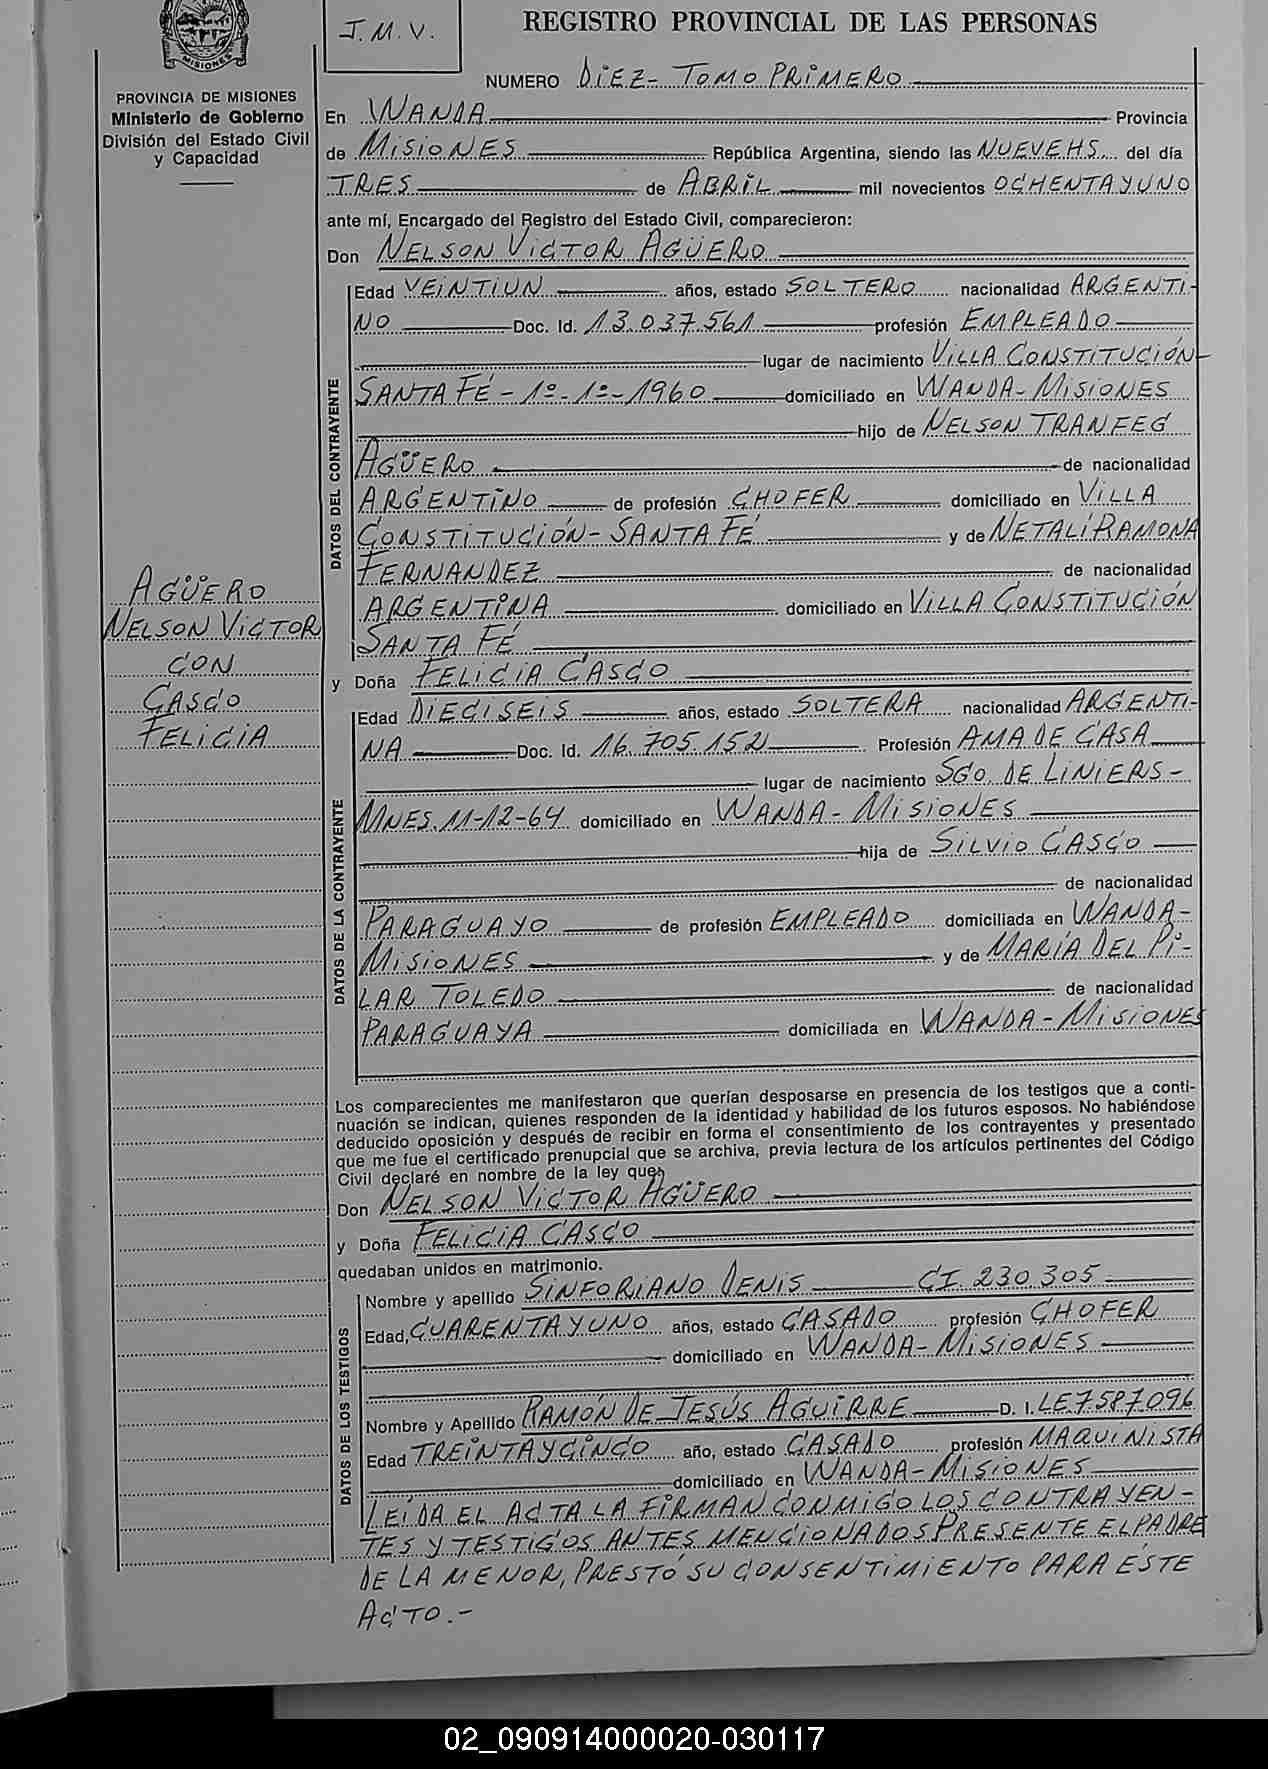 MISIONES
PROVINCIA DE MISIONES
Ministerio de Gobierno
División del Estado Civil
y Capacidad
AGÜERO
NELSON VICTOR
CON
CASCO
FELICIA
J.M.V.
REGISTRO PROVINCIAL DE LAS PERSONAS
NUMERO DIEZ- TOMO PRIMERO
En WANDA Provincia
de MISIONES República Argentina, siendo las NUEVE HS. del día
TRES de ABRIL mil novecientos OCHENTA Y UNO
ante mí, Encargado del Registro del Estado Civil, comparecieron:
Don NELSON VICTOR AGÜERO
DATOS DEL CONTRAYENTE
Edad VEINTIUN años, estado SOLTERO nacionalidad ARGENTI-
NO Doc. Id. 13.037.561 profesión EMPLEADO
lugar de nacimiento VILLA CONSTITUCIÓN-
SANTA FÉ - 1º-1º-1960 domiciliado en WANDA-MISIONES
hijo de NELSON TRANFEG
AGÜERO de nacionalidad
ARGENTINO de profesión CHOFER domiciliado en VILLA
CONSTITUCIÓN- SANTA FÉ y de NETALÍ RAMONA
FERNANDEZ de nacionalidad
ARGENTINA domiciliado en VILLA CONSTITUCIÓN
SANTA FÉ
y Doña FELICIA CASCO
DATOS DE LA CONTRAYENTE
Edad DIECISEIS años, estado SOLTERA nacionalidad ARGENTI-
NA Doc. Id. 16.705.152 Profesión AMA DE CASA
lugar de nacimiento SGO. DE LINIERS-
MNES. 11-12-64 domiciliado en WANDA-MISIONES
hija de SILVIO CASCO
de nacionalidad
PARAGUAYO de profesión EMPLEADO domiciliada en WANDA-
MISIONES y de MARÍA DEL PI-
LAR TOLEDO de nacionalidad
PARAGUAYA domiciliada en WANDA-MISIONES
Los comparecientes me manifestaron que querían desposarse en presencia de los testigos que a conti-
nuación se indican, quienes responden de la identidad y habilidad de los futuros esposos. No habiéndose
deducido oposición y después de recibir en forma el consentimiento de los contrayentes y presentado
que me fue el certificado prenupcial que se archiva, previa lectura de los artículos pertinentes del Código
Civil declaré en nombre de la ley que:
Don NELSON VICTOR AGÜERO
y Doña FELICIA CASCO
quedaban unidos en matrimonio.
DATOS DE LOS TESTIGOS
Nombre y apellido SINFORIANO DENIS CI. 230.305
Edad, CUARENTA Y UNO años, estado CASADO profesión CHOFER
domiciliado en WANDA-MISIONES
Nombre y Apellido RAMÓN DE JESÚS AGUIRRE D. I. LE 7587096
Edad TREINTA Y CINCO año, estado CASADO profesión MAQUINISTA
domiciliado en WANDA-MISIONES
LEÍDA EL ACTA LA FIRMAN CONMIGO LOS CONTRAYEN-
TES Y TESTIGOS ANTES MENCIONADOS PRESENTE EL PADRE
DE LA MENOR, PRESTÓ SU CONSENTIMIENTO PARA ÉSTE
ACTO.-
02_090914000020-030117